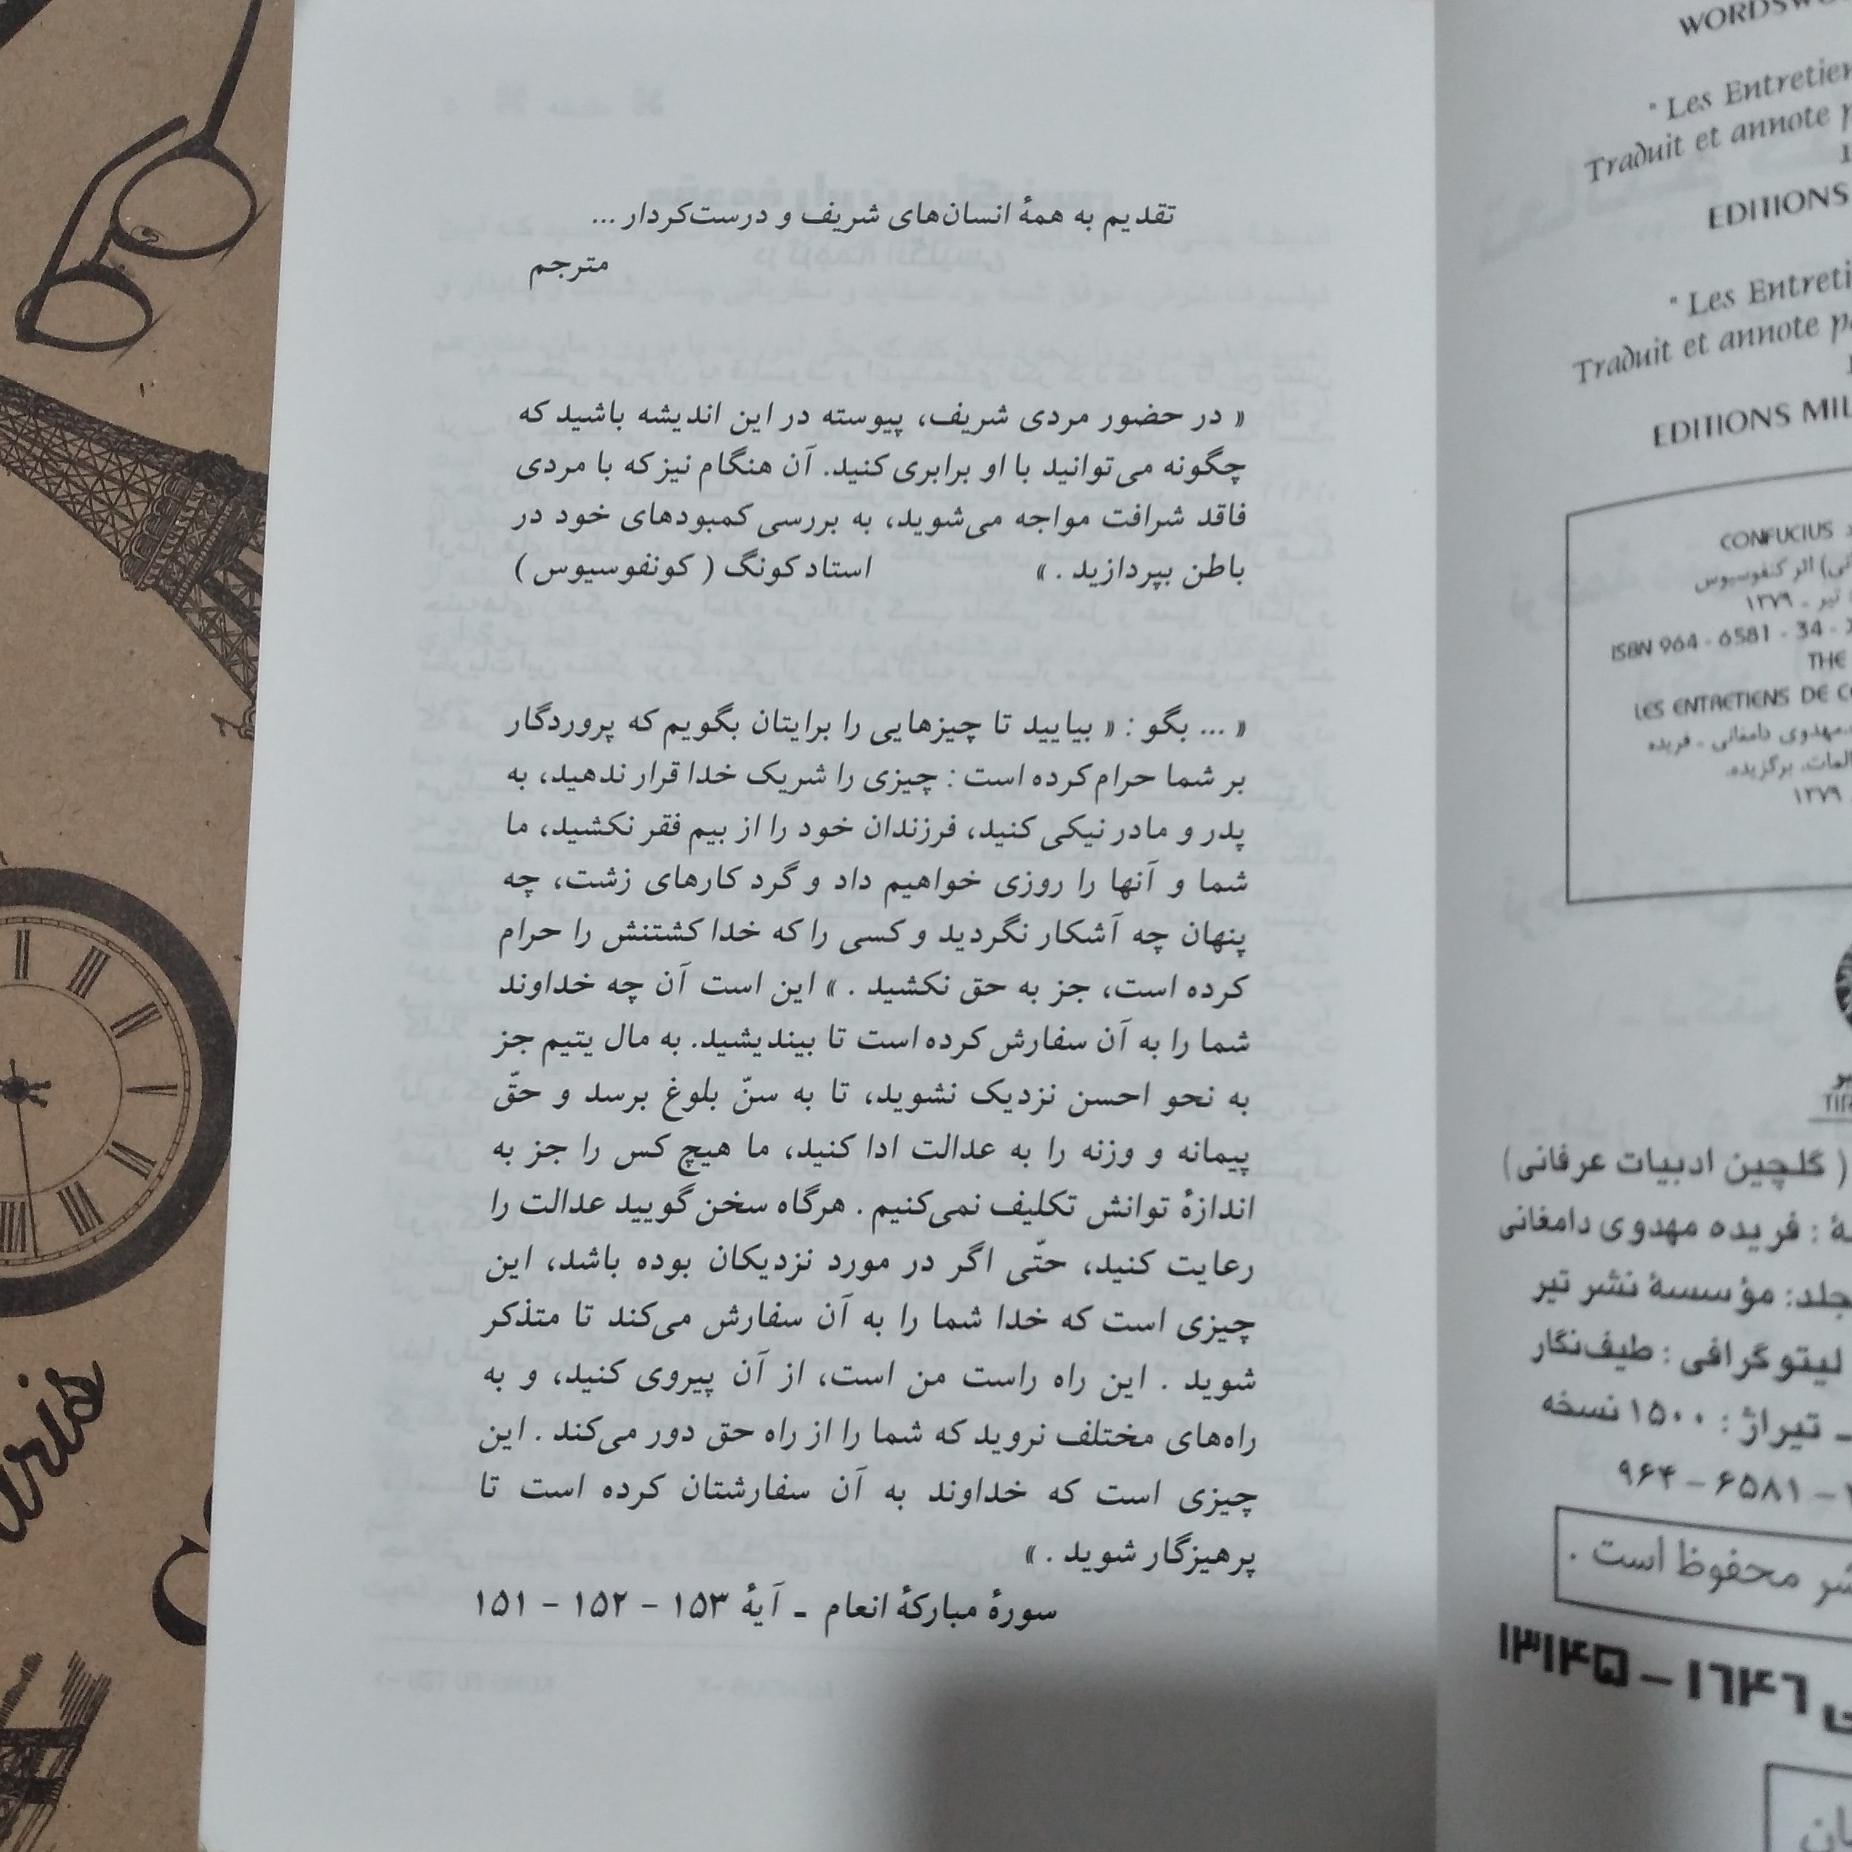 تقدیم به همهٔ انسان‌های شریف و درست‌کردار ...
مترجم
« در حضور مردی شریف، پیوسته در این اندیشه باشید که
چگونه می‌توانید با او برابری کنید. آن هنگام نیز که با مردی
فاقد شرافت مواجه می‌شوید، به بررسی کمبودهای خود در
باطن بپردازید . » استاد کونگ ( کونفوسیوس )
« ... بگو : « بیایید تا چیزهایی را برایتان بگویم که پروردگار
بر شما حرام کرده است : چیزی را شریک خدا قرار ندهید، به
پدر و مادر نیکی کنید، فرزندان خود را از بیم فقر نکشید، ما
شما و آنها را روزی خواهیم داد و گرد کارهای زشت، چه
پنهان چه آشکار نگردید و کسی را که خدا کشتنش را حرام
کرده است، جز به حق نکشید . » این است آن چه خداوند
شما را به آن سفارش کرده است تا بیندیشید. به مال یتیم جز
به نحو احسن نزدیک نشوید، تا به سنّ بلوغ برسد و حقّ
پیمانه و وزنه را به عدالت ادا کنید، ما هیچ کس را جز به
اندازهٔ توانش تکلیف نمی‌کنیم . هرگاه سخن گویید عدالت را
رعایت کنید، حتّی اگر در مورد نزدیکان بوده باشد، این
چیزی است که خدا شما را به آن سفارش می‌کند تا متذکر
شوید . این راه راست من است، از آن پیروی کنید، و به
راه‌های مختلف نروید که شما را از راه حق دور می‌کند . این
چیزی است که خداوند به آن سفارشتان کرده است تا
پرهیزگار شوید . »
سورهٔ مبارکهٔ انعام ـ آیهٔ ۱۵۳ - ۱۵۲ - ۱۵۱
" Les
Traduit et annote
EDITIONS
" Les
Traduit et annote
EDITIONS
CONFUCIUS
اثر کنفوسیوس
تیر ـ ۱۳۷۹
ISBN 964 - 6581 - 34 -
THE
LES ENTRETIENS DE
مهدوی دامغانی ـ فریده
برگزیده.
۱۳۷۹
( گلچین ادبیات عرفانی)
: فریده مهدوی دامغانی
مؤسسهٔ نشر تیر
لیتوگرافی : طیف‌نگار
ـ تیراژ : ۱۵۰۰ نسخه
۹۶۴ - ۶۵۸۱ -
محفوظ است .
۱۳۱۴۵ - ۱۶۴۶